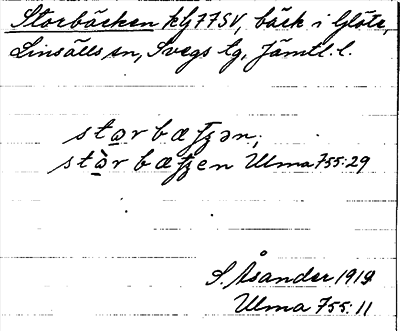 Storbäcken kG77SV, bäck i Glöte,
Linsälls sn, Svegs tg, Jämtl. l.
starbæʃʒən;
stàrbæʃʒen Ulma 755:29
S. Åsander 1919
Ulma 755:11